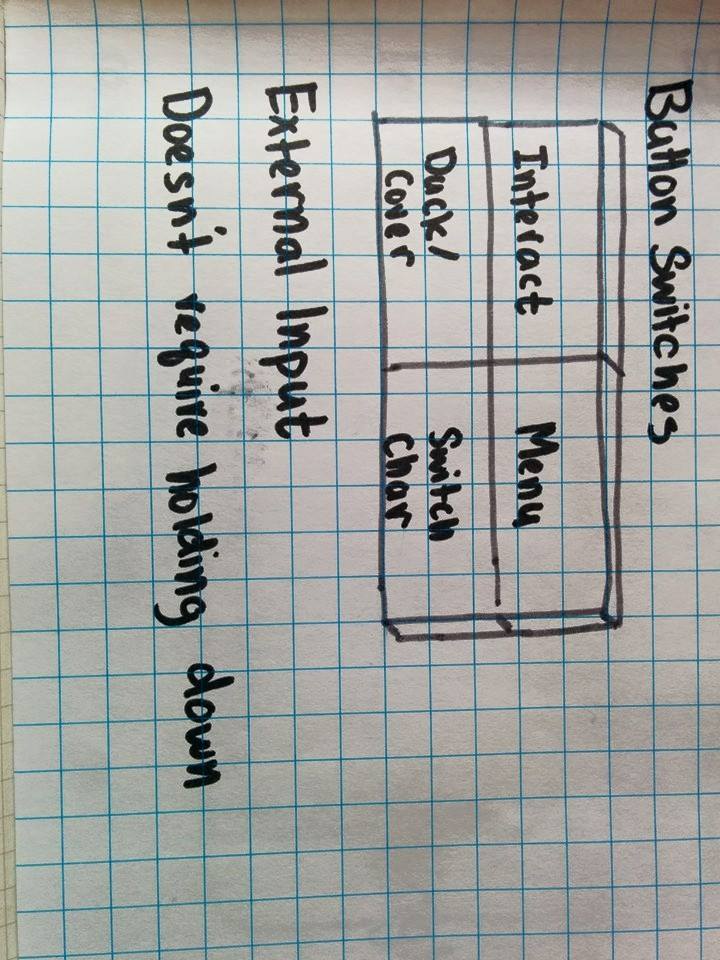 Button Switches
Interact
Menu
Duck/
Cover
Switch
Char
External Input
Doesn't require holding down